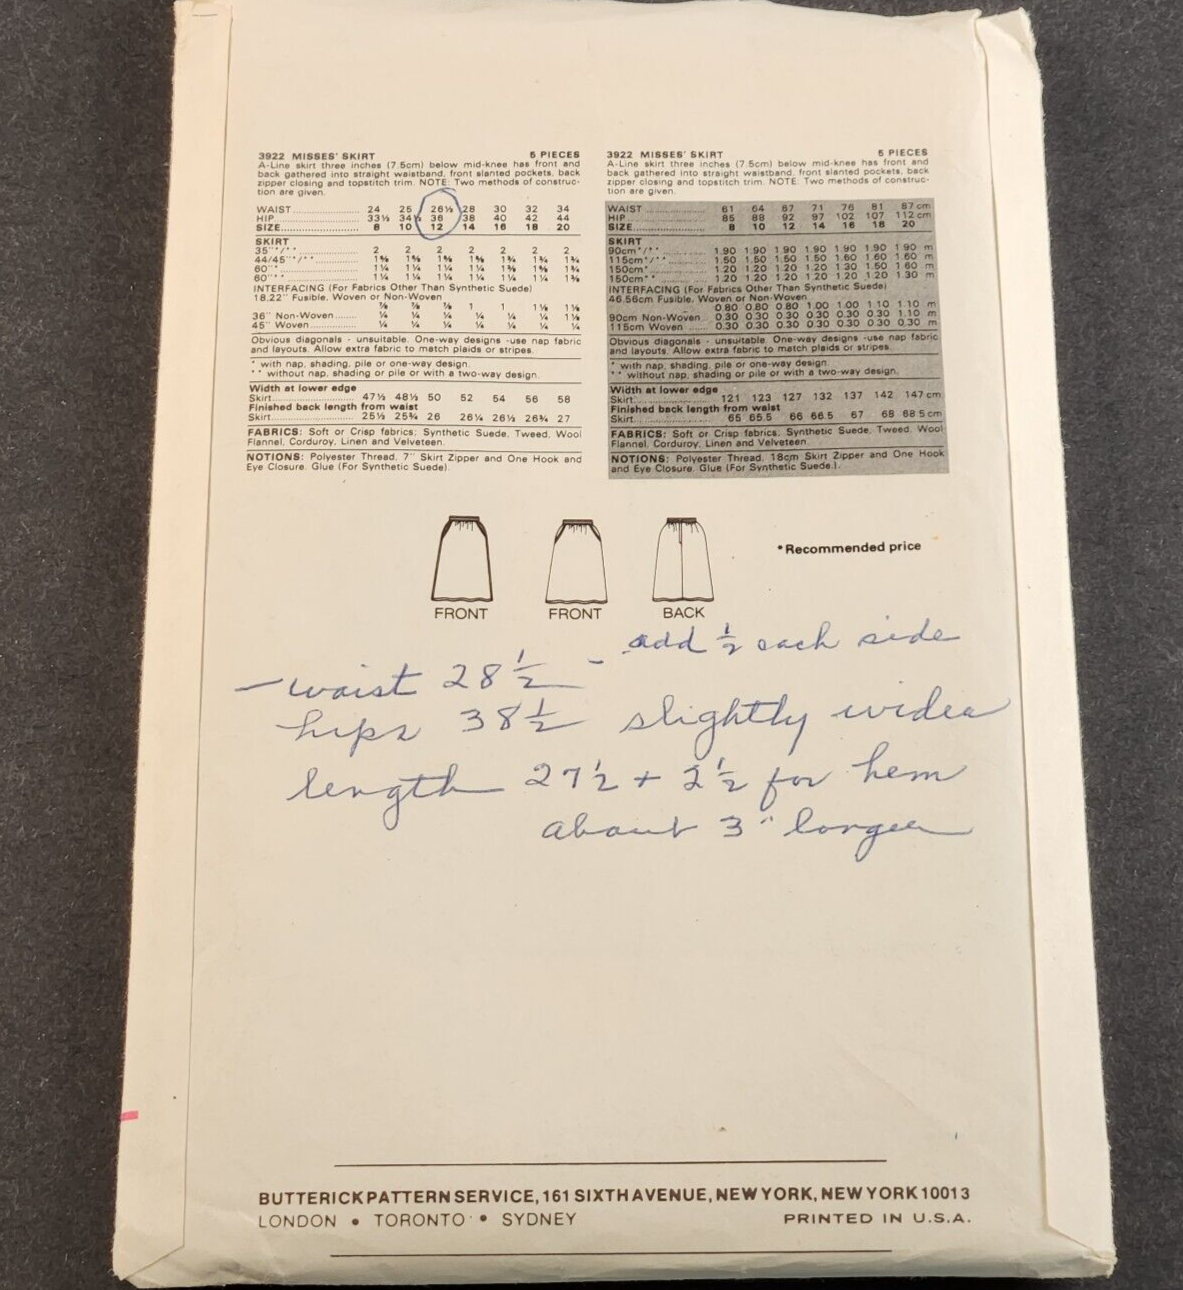 3922 MISSES' SKIRT 5 PIECES
A-Line skirt three inches (7.5cm) below mid-knee has front and
back gathered into straight waistband, front slanted pockets, back
zipper closing and topstitch trim. NOTE: Two methods of construc-
tion are given.
WAIST 24 25 26½ 28 30 32 34
HIP 33½ 34½ 36 38 40 42 44
SIZE 8 10 12 14 16 18 20
SKIRT
35"*/** 2 2 2 2 2 2 2
44/45"*/**
60"*
60"**
INTERFACING (For Fabrics Other Than Synthetic Suede)
18,22" Fusible, Woven or Non-Woven
⅞ ⅞ ⅞ 1 1 1⅛ 1⅛
36" Non-Woven ¼ ¼ ¼ ¼ ¼ ¼ 1⅛
45" Woven ¼ ¼ ¼ ¼ ¼ ¼ ¼
Obvious diagonals - unsuitable. One-way designs -use nap fabric
and layouts. Allow extra fabric to match plaids or stripes.
* with nap, shading, pile or one-way design.
** without nap, shading or pile or with a two-way design.
Width at lower edge
Skirt 47½ 48½ 50 52 54 56 58
Finished back length from waist
Skirt 25½ 25¾ 26 26¼ 26½ 26¾ 27
FABRICS: Soft or Crisp fabrics; Synthetic Suede, Tweed, Wool
Flannel, Corduroy, Linen and Velveteen.
NOTIONS: Polyester Thread, 7" Skirt Zipper and One Hook and
Eye Closure. Glue (For Synthetic Suede).
3922 MISSES' SKIRT 5 PIECES
A-Line skirt three inches (7.5cm) below mid-knee has front and
back gathered into straight waistband, front slanted pockets, back
zipper closing and topstitch trim. NOTE: Two methods of construc-
tion are given.
WAIST 61 64 67 71 76 81 87 cm
HIP 85 88 92 97 102 107 112 cm
SIZE 8 10 12 14 16 18 20
SKIRT
90cm*/** 1.90 1.90 1.90 1.90 1.90 1.90 1.90 m
115cm*/** 1.50 1.50 1.50 1.50 1.60 1.60 1.60 m
150cm* 1.20 1.20 1.20 1.20 1.30 1.50 1.60 m
150cm** 1.20 1.20 1.20 1.20 1.20 1.20 1.30 m
INTERFACING (For Fabrics Other Than Synthetic Suede)
46,56cm Fusible, Woven or Non-Woven
0.80 0.80 0.80 1.00 1.00 1.10 1.10 m
90cm Non-Woven 0.30 0.30 0.30 0.30 0.30 0.30 1.10 m
115cm Woven 0.30 0.30 0.30 0.30 0.30 0.30 0.30 m
Obvious diagonals - unsuitable. One-way designs -use nap fabric
and layouts. Allow extra fabric to match plaids or stripes.
* with nap, shading, pile or one-way design.
** without nap, shading or pile or with a two-way design.
Width at lower edge
Skirt 121 123 127 132 137 142 147 cm
Finished back length from waist
Skirt 65 65.5 66 66.5 67 68 68.5 cm
FABRICS: Soft or Crisp fabrics; Synthetic Suede, Tweed, Wool
Flannel, Corduroy, Linen and Velveteen.
NOTIONS: Polyester Thread, 18cm Skirt Zipper and One Hook
and Eye Closure. Glue (For Synthetic Suede.).
FRONT FRONT BACK
*Recommended price
- waist 28 ½ - add ½ each side
hips 38 ½ slightly wider
length 27 ½ + 2 ½ for hem
about 3" longer
BUTTERICK PATTERN SERVICE, 161 SIXTH AVENUE, NEW YORK, NEW YORK 10013
LONDON • TORONTO • SYDNEY PRINTED IN U.S.A.